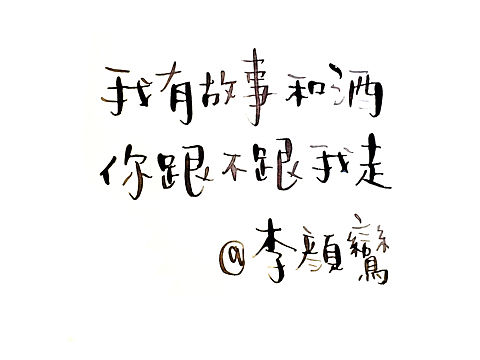 我有故事和酒
你跟不跟我走
@李顏鸞